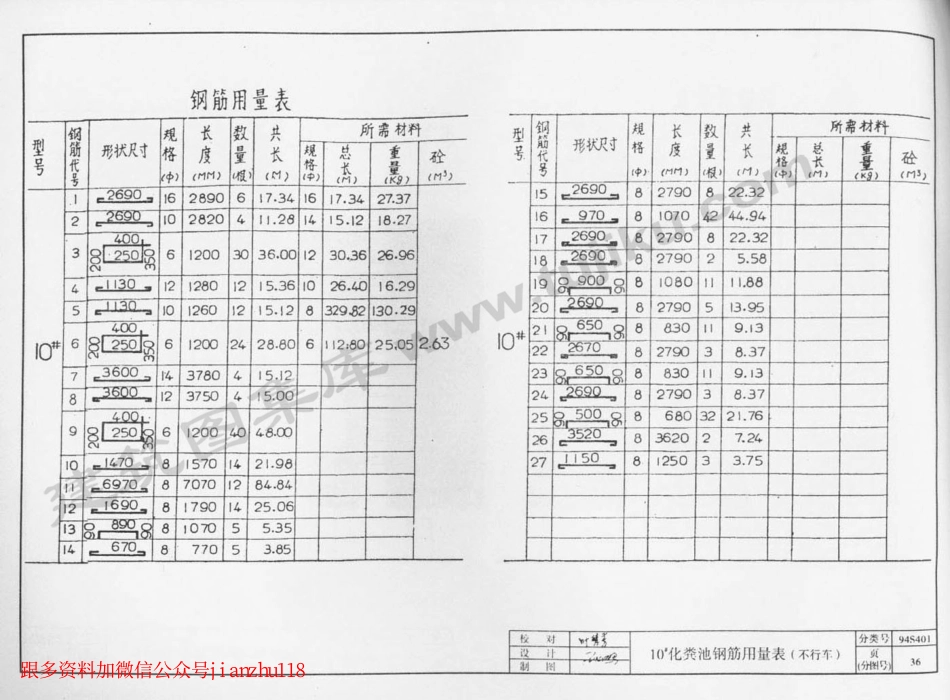 钢筋用量表
型号 钢筋代号 形状尺寸 规格(Φ) 长度(MM) 数量(根) 共长(M) 所需材料 规格(Φ) 总长(M) 重量(Kg) 砼(M³)
10#
1 2690 16 2890 6 17.34 16 17.34 27.37
2 2690 10 2820 4 11.28 14 15.12 18.27
3 400 200 250 350 6 1200 30 36.00 12 30.36 26.96
4 1130 12 1280 12 15.36 10 26.40 16.29
5 1130 10 1260 12 15.12 8 329.82 130.29
6 400 200 250 350 6 1200 24 28.80 6 112.80 25.05 2.63
7 3600 14 3780 4 15.12
8 3600 12 3750 4 15.00
9 400 200 250 350 6 1200 40 48.00
10 1470 8 1570 14 21.98
11 6970 8 7070 12 84.84
12 1690 8 1790 14 25.06
13 90 890 90 8 1070 5 5.35
14 670 8 770 5 3.85
型号 钢筋代号 形状尺寸 规格(Φ) 长度(MM) 数量(根) 共长(M) 所需材料 规格(Φ) 总长(M) 重量(Kg) 砼(M³)
10#
15 2690 8 2790 8 22.32
16 970 8 1070 42 44.94
17 2690 8 2790 8 22.32
18 2690 8 2790 2 5.58
19 90 900 90 8 1080 11 11.88
20 2690 8 2790 5 13.95
21 90 650 90 8 830 11 9.13
22 2670 8 2790 3 8.37
23 90 650 90 8 830 11 9.13
24 2690 8 2790 3 8.37
25 90 500 90 8 680 32 21.76
26 3520 8 3620 2 7.24
27 1150 8 1250 3 3.75
建筑图集库 www.tujiku.com
校对
设计
制图
10#化粪池钢筋用量表(不行车)
分类号 94S401
页(分图号) 36
跟多资料加微信公众号jianzhu118